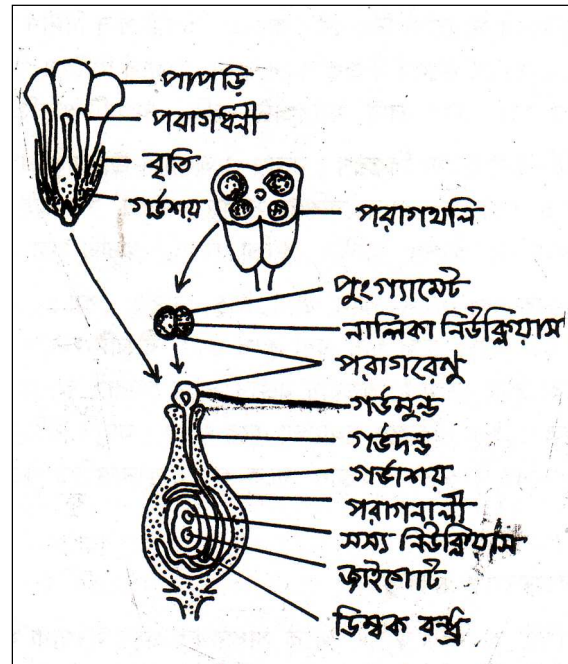 পাপড়ি
পরাগধনী
বৃতি
গর্ভশয়
পরাগথলি
পুংগ্যামেট
নালিকা নিউক্লিয়াস
পরাগরেণু
গর্ভমুন্ড
গর্ভদন্ড
গর্ভাশয়
পরাগনালী
সস্য নিউক্লিয়াস
জাইগোট
ডিম্বক রন্ধ্র